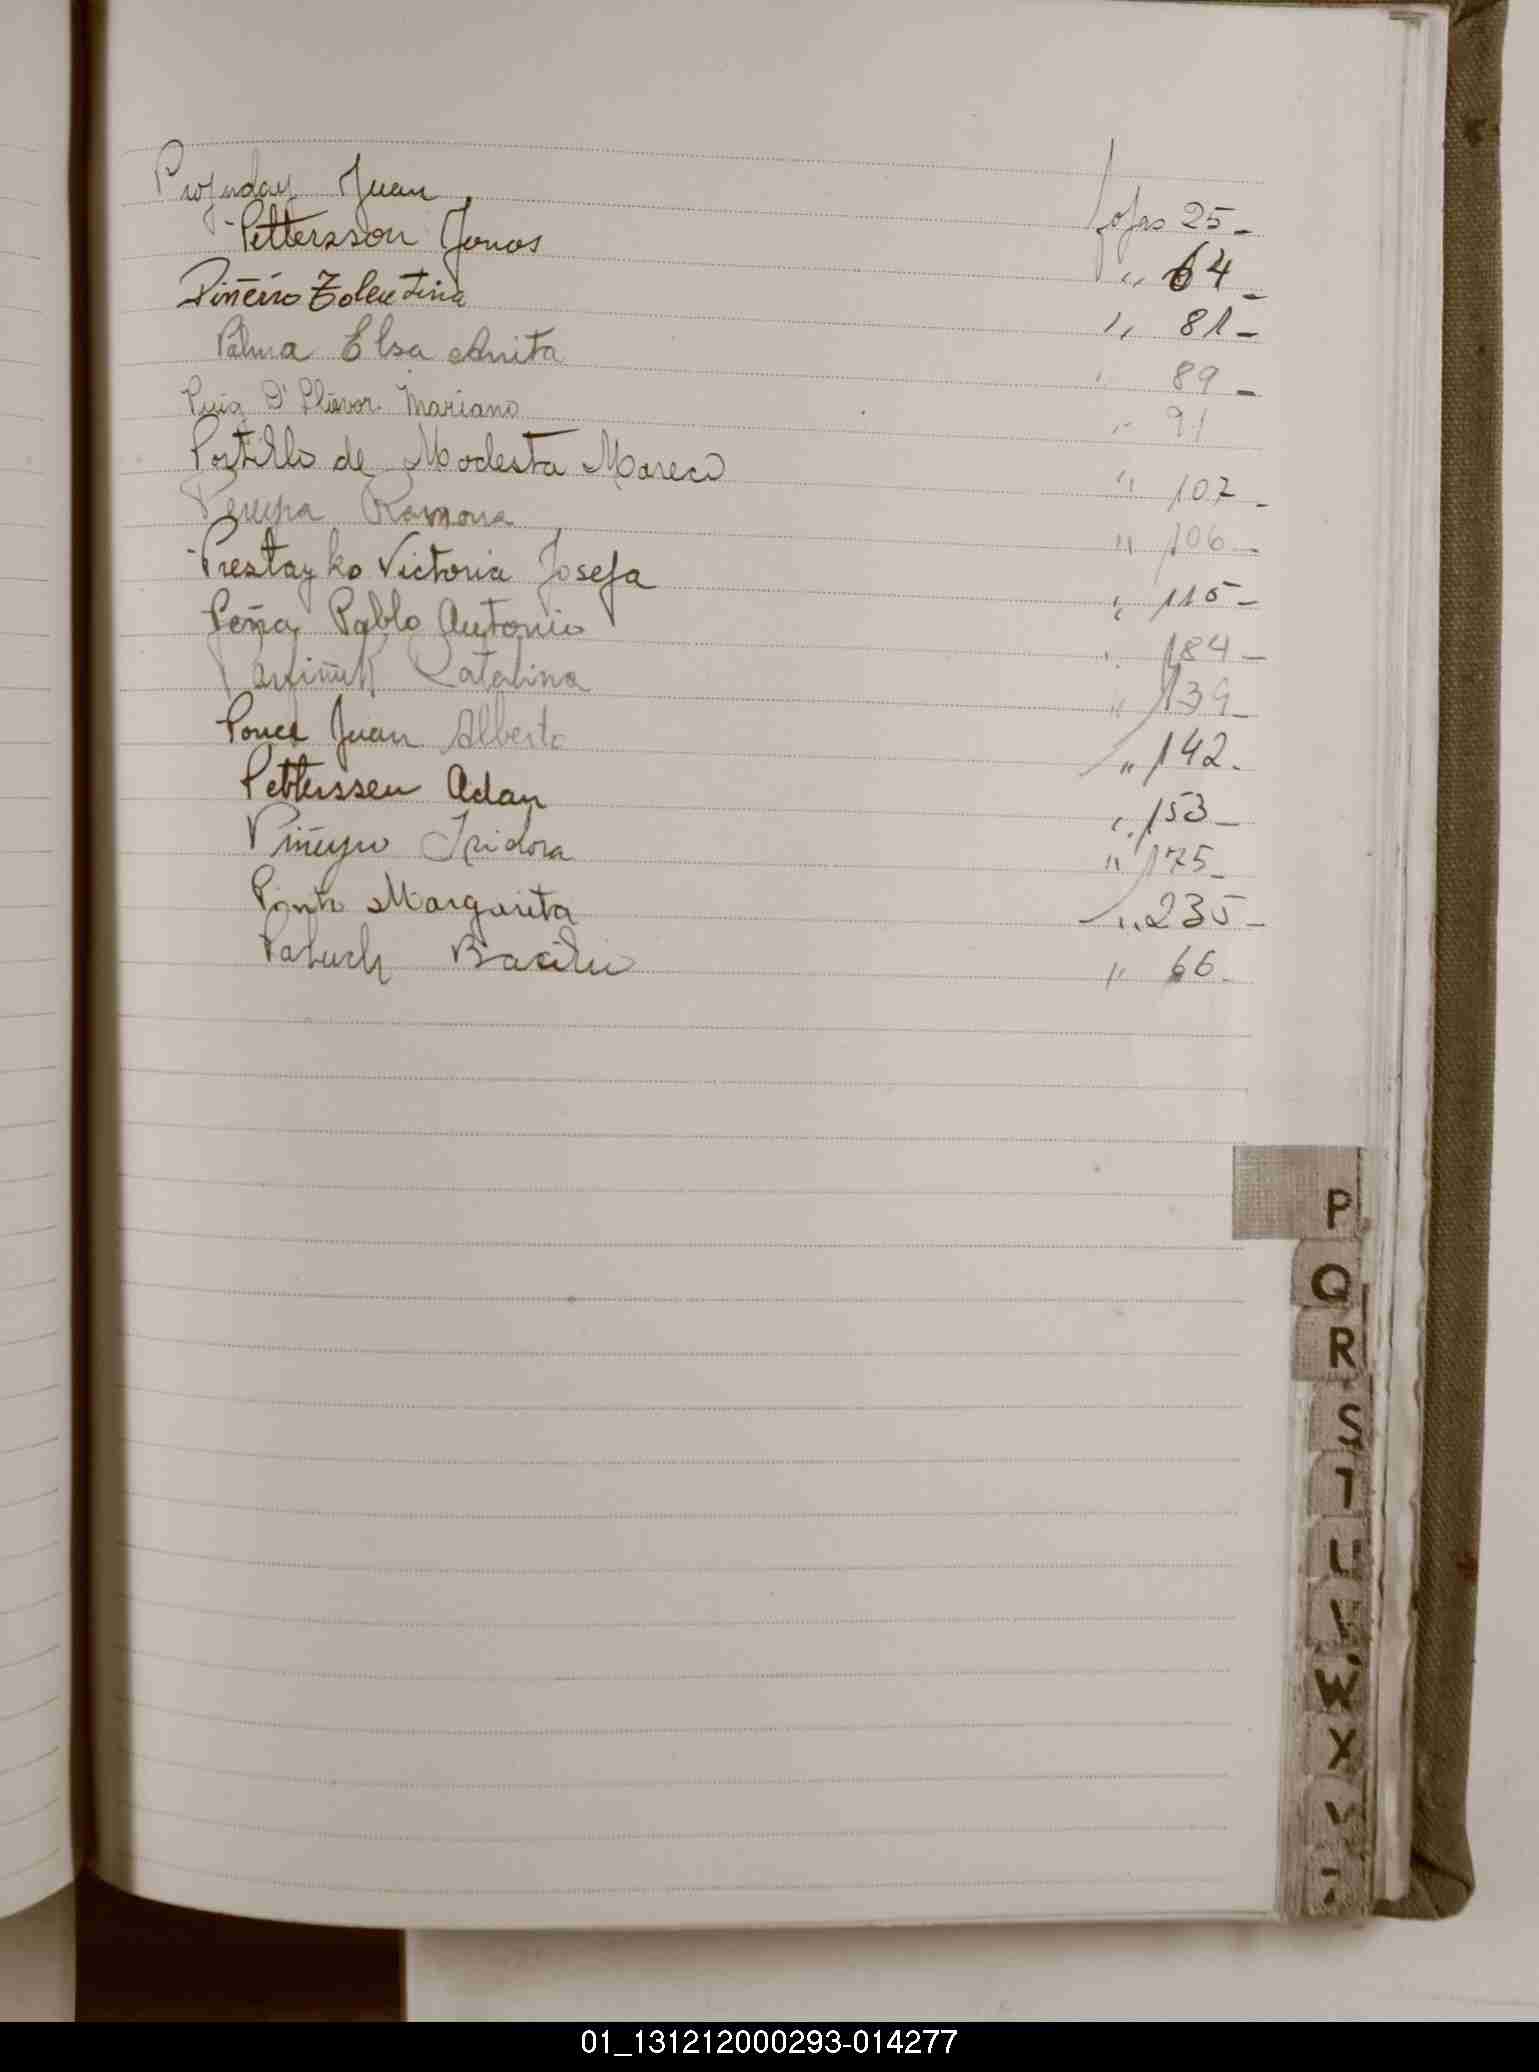 Juan fojas 25 -
- Pettersson Jonas " 64 -
Piñeiro Tolentina " 81 -
Palma Elsa Anita " 89 -
Puig D' Llivor Mariano " 91
Portillo de Modesta Mareco " 107 -
Ramona " 106 -
- Prestayko Victoria Josefa " 115 -
Peña Pablo Antonio " 184 -
Catalina " 139 -
Ponce Juan Alberto " 142 -
Petterssen Adan " 153 -
Piñeyro Isidora " 175 -
Pinto Margarita " 235 -
Basilio " 66 -
P
Q
R
S
T
U
V
W
X
Y
01_131212000293-014277